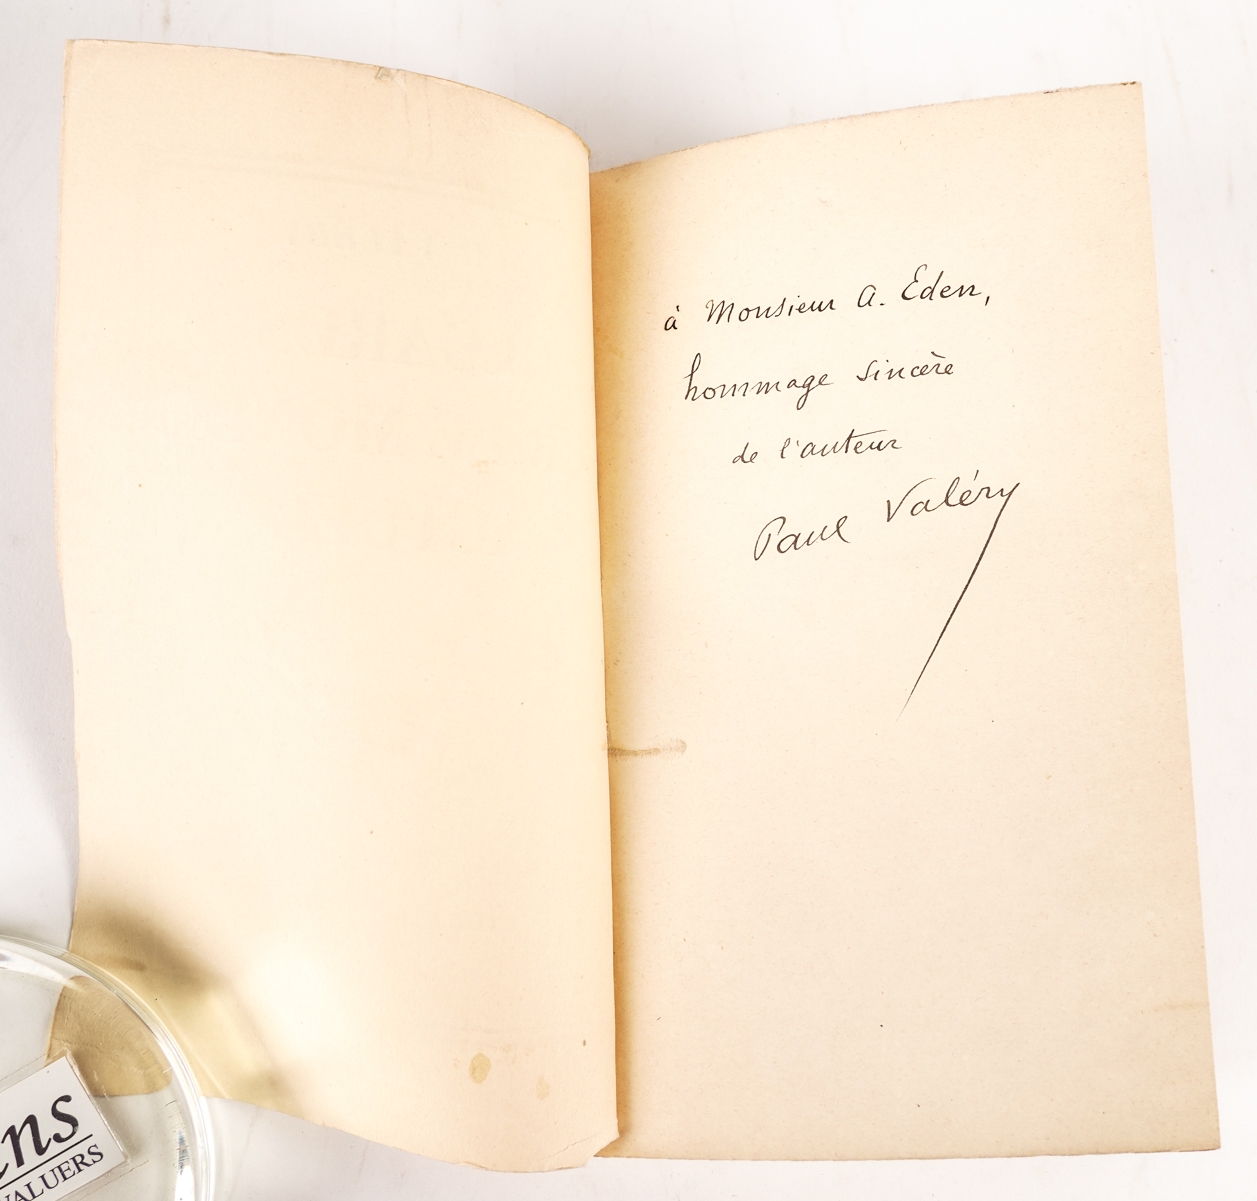 à Monsieur A. Eden,
hommage sincère
de l'auteur
Paul Valéry
ns
VALUERS